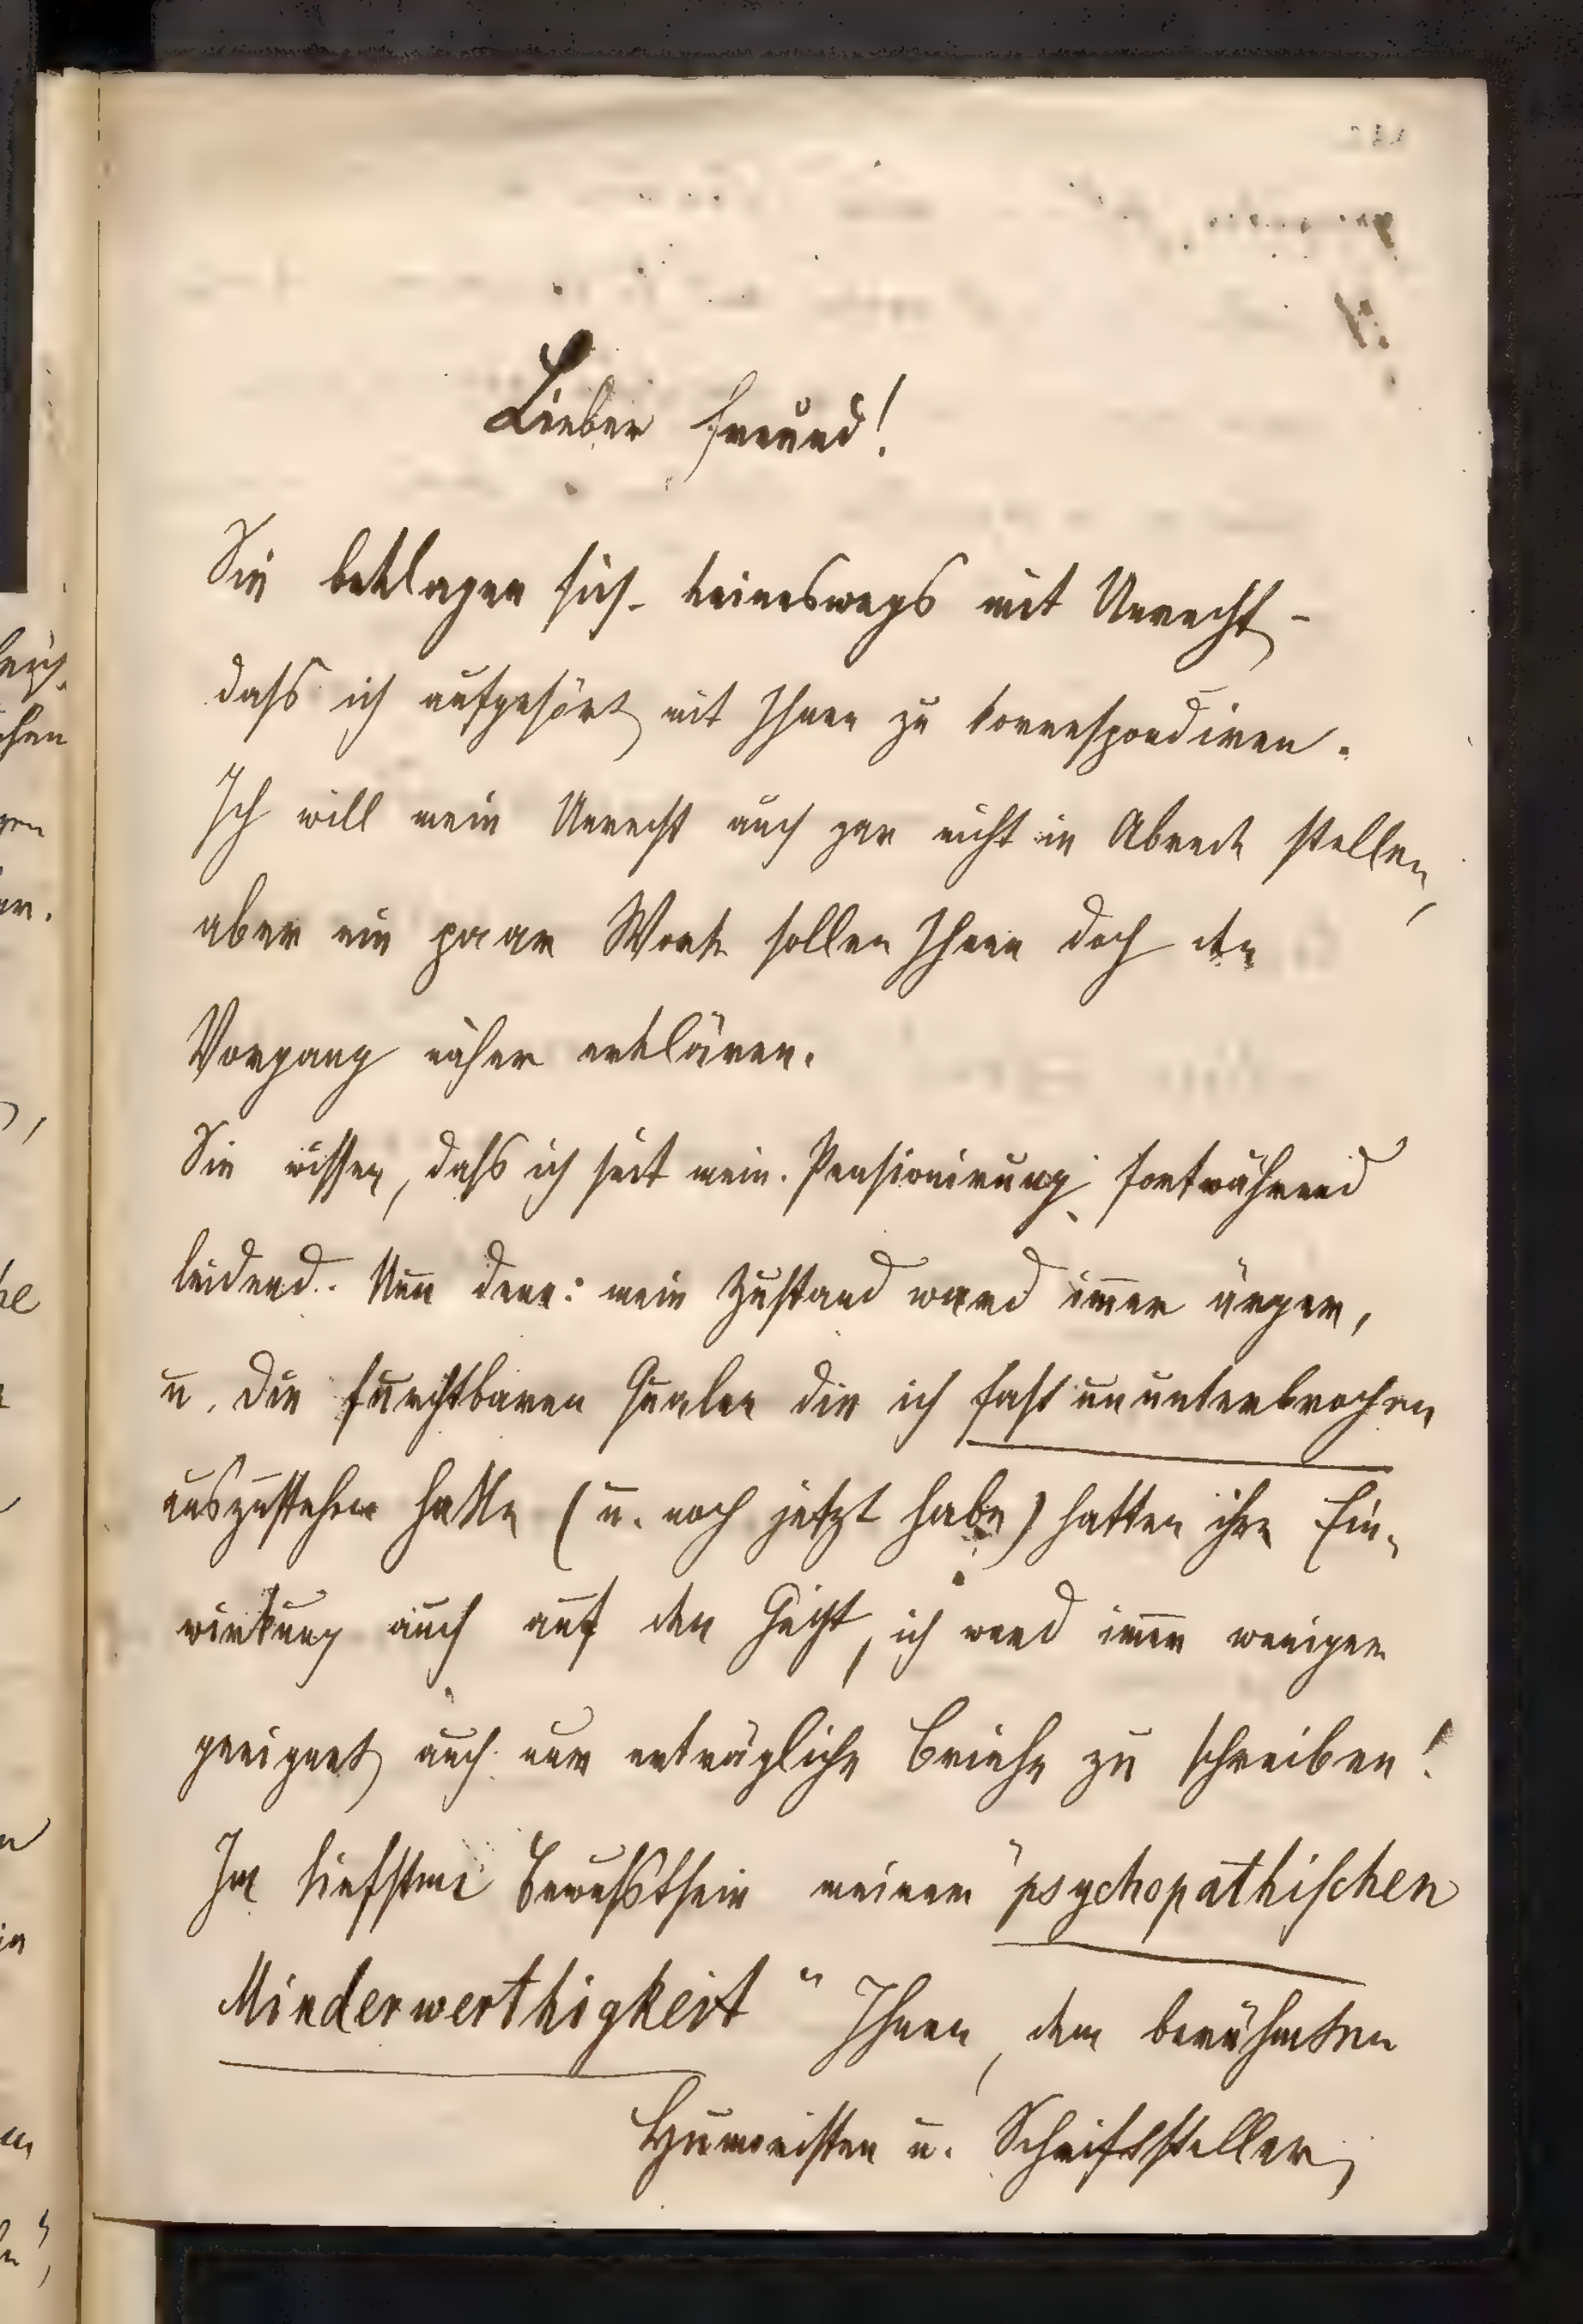 Lieber Freund!
Sie beklagen sich - keineswegs mit Unrecht -
dass ich aufgehört mit Ihnen zu korrespondiren.
Ich will mein Unrecht auch gar nicht in Abrede stellen,
aber ein paar Worte sollen Ihnen doch den
Vorgang näher erklären.
Sie wissen, dass ich seit mein. Pensionirung fortwährend
leidend. Nun denn: mein Zustand ward immer ärger,
u. die furchtbaren Qualen die ich fast ununterbrochen
auszustehen hatte (u. noch jetzt habe) hatten ihre Ein-
wirkung auch auf den Geist, ich ward immer weniger
geeignet auch nur erträgliche Briefe zu schreiben!
Im tiefsten Bewusstsein meiner "psychopathischen
Minderwerthigkeit" Ihnen, dem berühmten
Humoristen u. Schriftsteller,